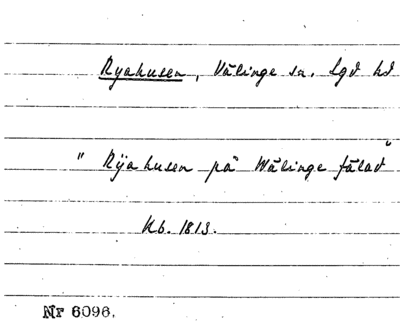 Ryahusen, Välinge sn. Lgd hd
"Rÿahusen på Wälinge fälad"
Kb. 1813.
Nr 6096.